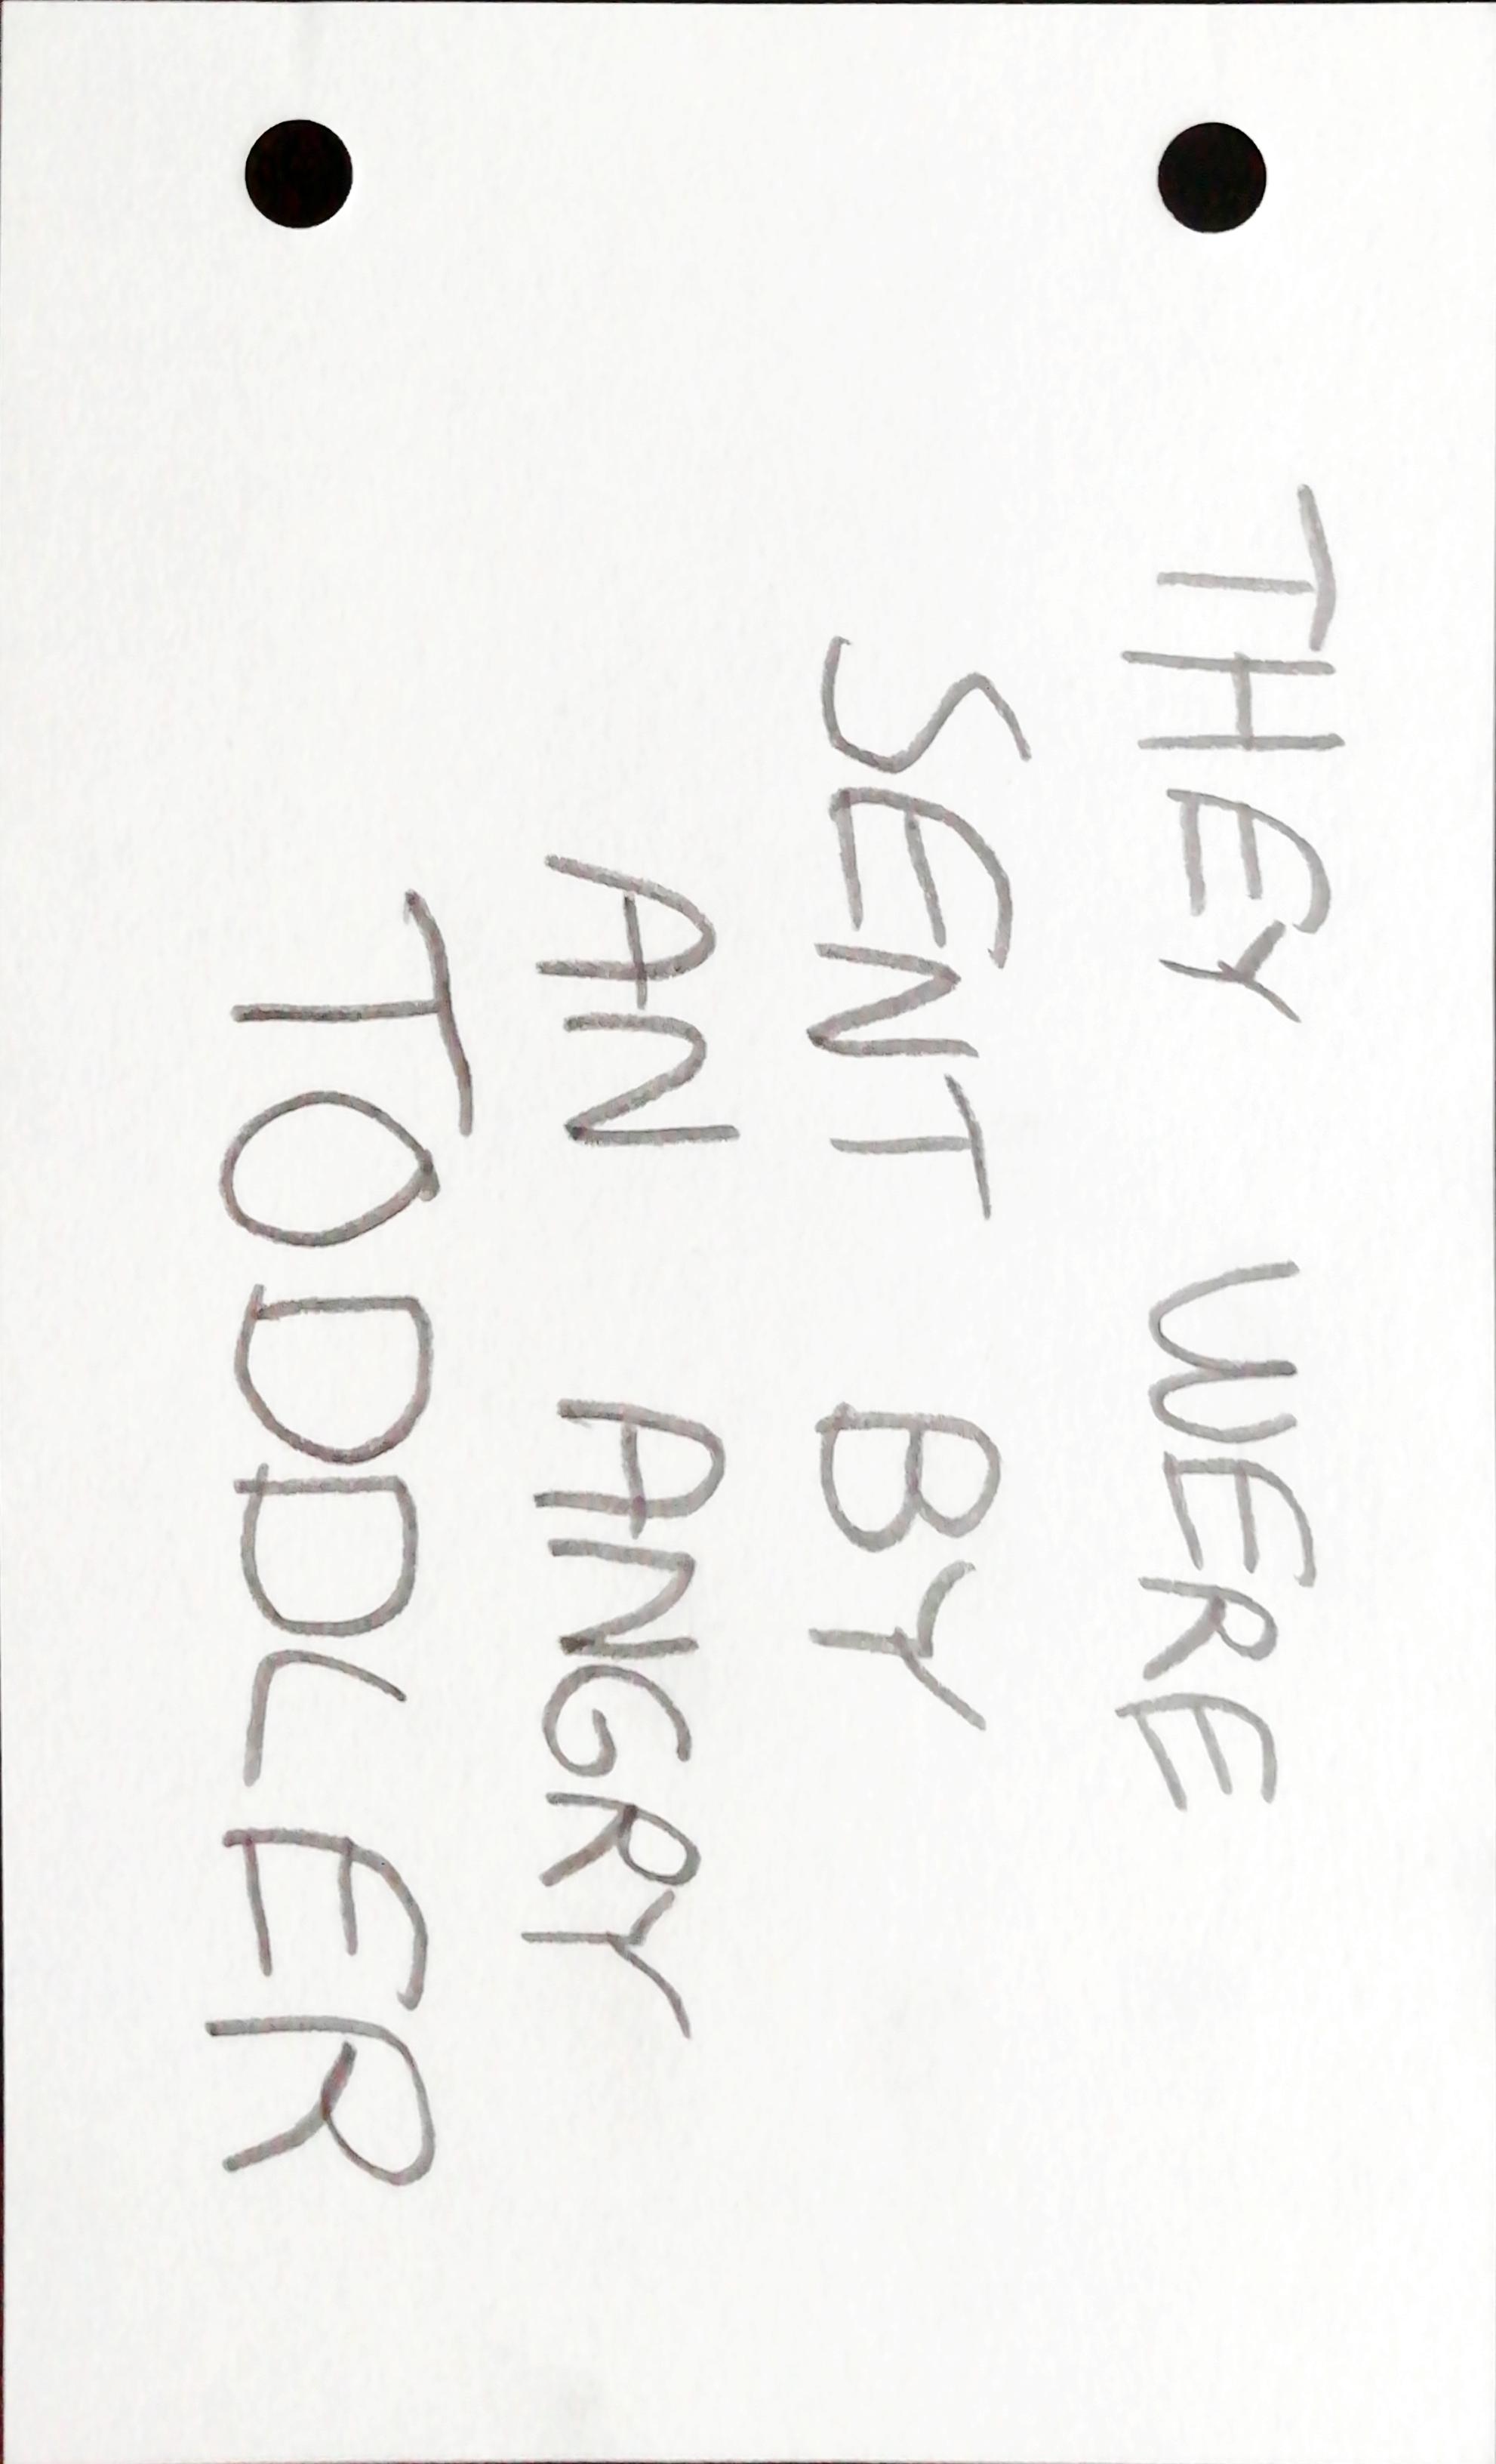 THEY WERE
SENT BY
AN ANGRY
TODDLER